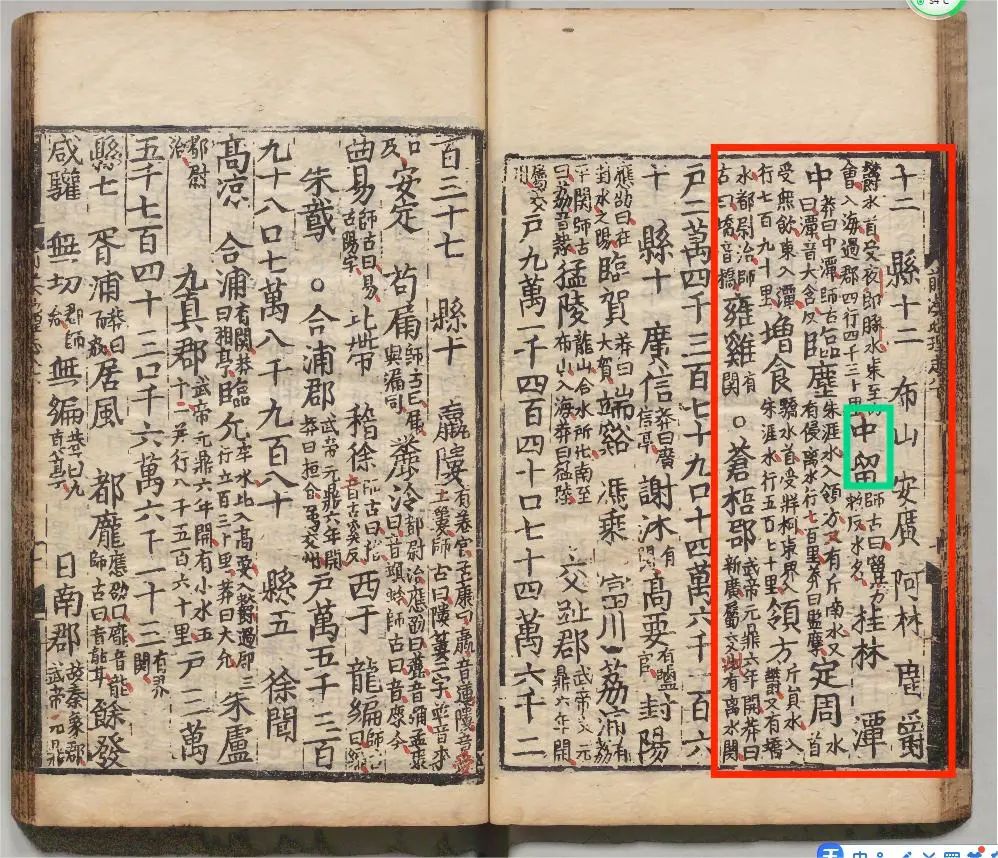 十二 縣十二 布山 安廣 阿林 廣鬱
鬱水首受夜郎豚水東至四會入海過郡四行四千三十里 中留 師古曰留力救反水名 桂林 潭
中 莽曰中潭師古曰潭音大含反 臨塵 朱涯水入領方又有斤南水又有侵離水行七百里莽曰監塵 定周 水首
受無斂東入潭行七百九十里 增食 驩水首受牂柯東界入朱涯水行五百七十里 領方 斤員水入鬱又有墧
水都尉治師古曰墧音橋 雍雞 有關 ○蒼梧郡 武帝元鼎六年開莽曰新廣屬交州有離水關
戶二萬四千三百七十九口十四萬六千一百六
十 縣十 廣信 莽曰廣信亭 謝沐 有關 高要 有鹽官 封陽
應劭曰在封水之陽 臨賀 莽曰大賀 端谿 馮乘 富川 荔浦 有荔
平關師古曰荔音隸 猛陵 龍山合水所出南至布山入海莽曰猛陸 交趾郡 武帝元鼎六年開
屬交州 戶九萬二千四百四十口七十四萬六千二
百三十七 縣十 羸𨻻 有羞官孟康曰羸音蓮𨻻音受土簍師古曰𨻻簍二字並音來
口反 安定 苟屚 師古曰屚與漏同 麊泠 都尉治應劭曰麊音彌孟康曰音螟蛉師古曰音麋零
曲昜 師古曰昜古陽字 比帶 稽徐 師古曰稽音古奚反 西于 龍編 師古曰編
朱䳒 ○合浦郡 武帝元鼎六年開莽曰桓合屬交州 戶萬五千三百
九十八口七萬八千九百八十 縣五 徐聞
高涼 合浦 有關莽曰桓亭 臨允 牢水北入高要入鬱過郡三行五百三十里莽曰大允 朱盧
都尉治 九真郡 武帝元鼎六年開有小水五十二并行八千五百六十里 戶三萬
五千七百四十三口十六萬六千一十三 有界關
縣七 胥浦 莽曰驩成 居風 都龐 應劭曰龐音龍師古曰音聾 餘發
咸驩 無切 都尉治 無編 莽曰九真亭 日南郡 故秦象郡武帝元鼎